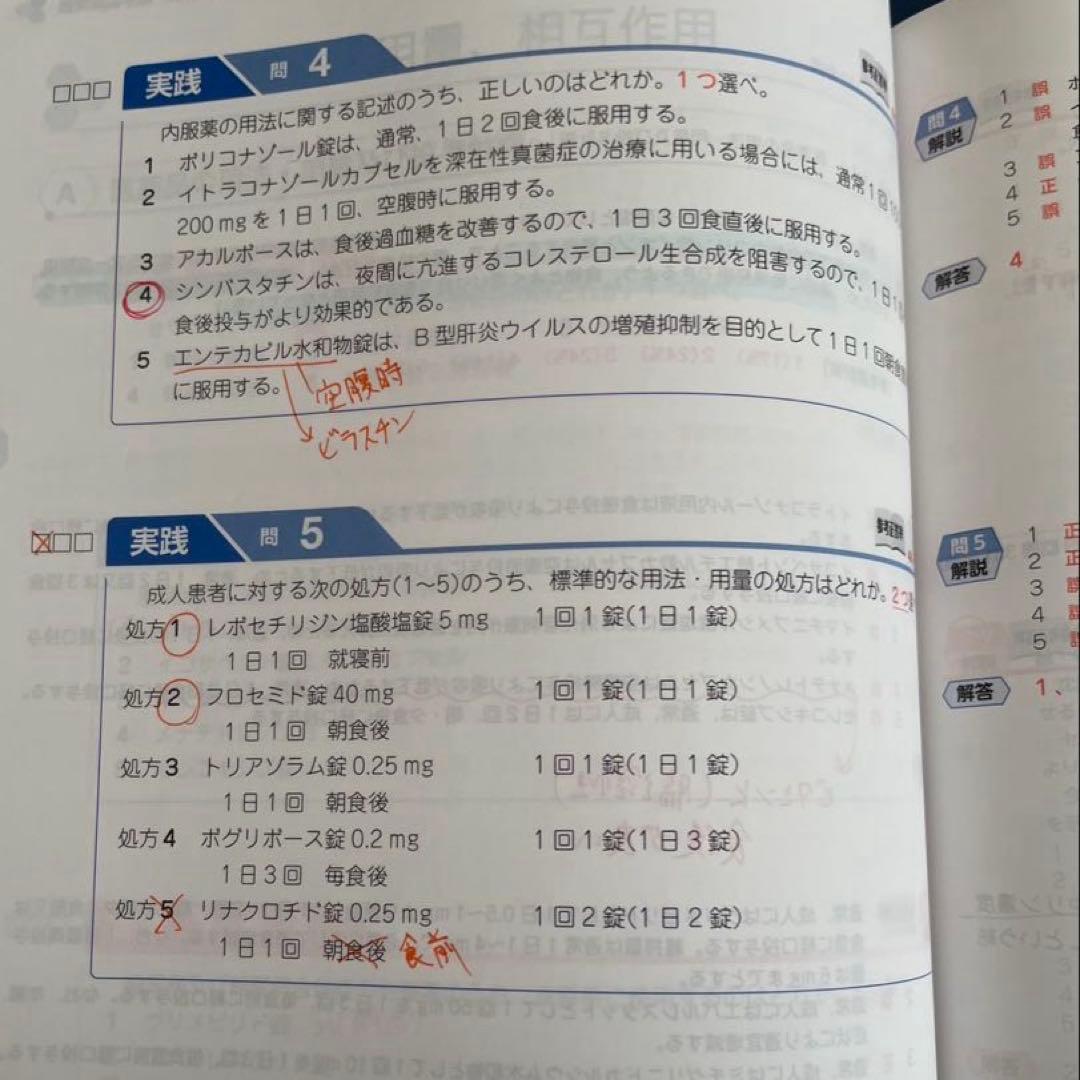 用量、相互作用
実践 問 4
内服薬の用法に関する記述のうち、正しいのはどれか。1つ選べ。
1 ボリコナゾール錠は、通常、1日2回食後に服用する。
2 イトラコナゾールカプセルを深在性真菌症の治療に用いる場合には、通常1回
200 mgを1日1回、空腹時に服用する。
3 アカルボースは、食後過血糖を改善するので、1日3回食直後に服用する。
4 シンバスタチンは、夜間に亢進するコレステロール生合成を阻害するので、1日1
食後投与がより効果的である。
5 エンテカビル水和物錠は、B型肝炎ウイルスの増殖抑制を目的として1日1回朝食
に服用する。
空腹時
ビラスチン
実践 問 5
成人患者に対する次の処方(1〜5)のうち、標準的な用法・用量の処方はどれか。2つ
処方1 レボセチリジン塩酸塩錠5 mg 1回1錠(1日1錠)
1日1回 就寝前
処方2 フロセミド錠40 mg 1回1錠(1日1錠)
1日1回 朝食後
処方3 トリアゾラム錠0.25 mg 1回1錠(1日1錠)
1日1回 朝食後
処方4 ボグリボース錠0.2 mg 1回1錠(1日3錠)
1日3回 毎食後
処方5 リナクロチド錠0.25 mg 1回2錠(1日2錠)
1日1回 朝食後 食前
問4
解説
1 誤
2 誤
3 誤
4 正
5 誤
解答 4
問5
解説
1 正
2 正
3 誤
4 誤
5 誤
解答 1、